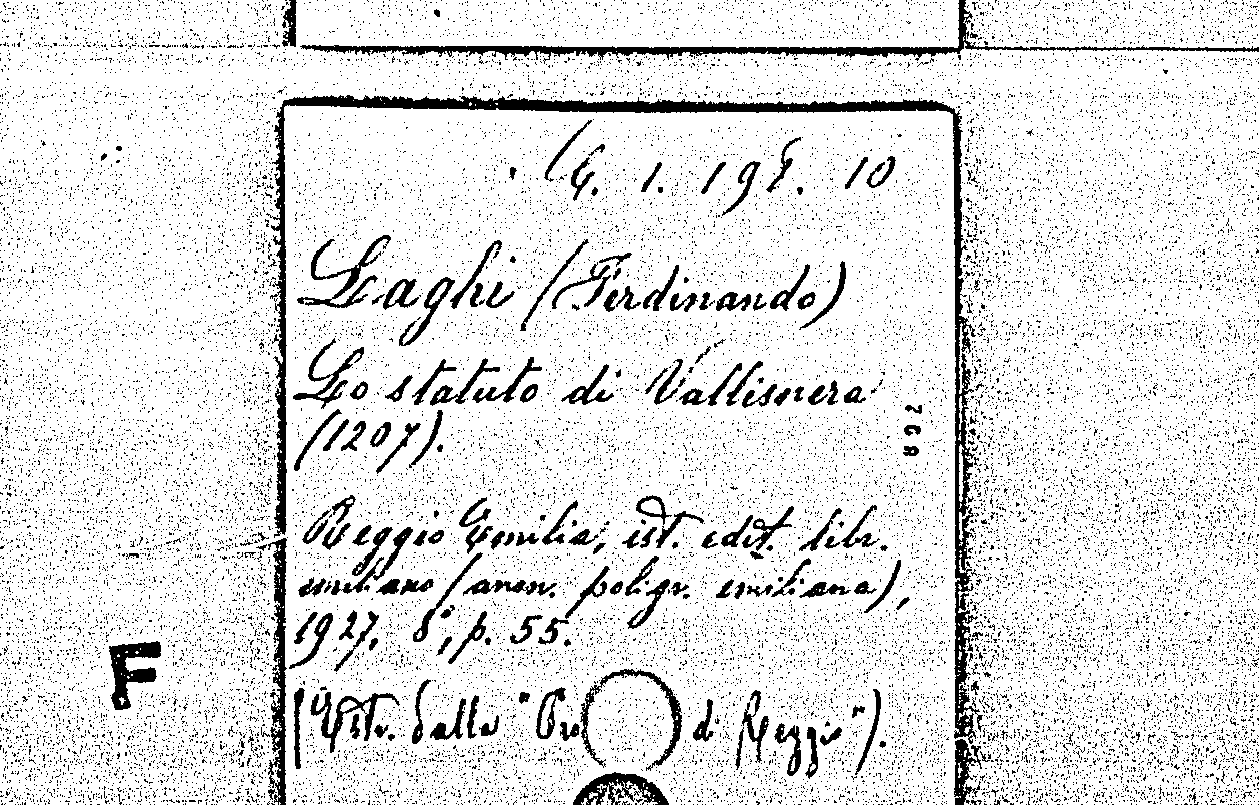 G. 1. 198. 10
Laghi (Ferdinando)
Lo statuto di Vallisnera
(1207).
Reggio Emilia, ist. edit. libr.
emiliano (anon. poligr. emiliana),
1927, 8°, p. 55.
(Estr. dalla "Pro di Reggio").
F